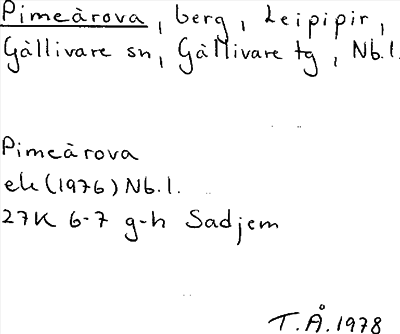 Pimeårova, berg, Leipipir,
Gällivare sn, Gällivare tg, Nb.l.
Pimeårova
ek (1976) Nb.l.
27K 6-7 g-h Sadjem
T.Å.1978